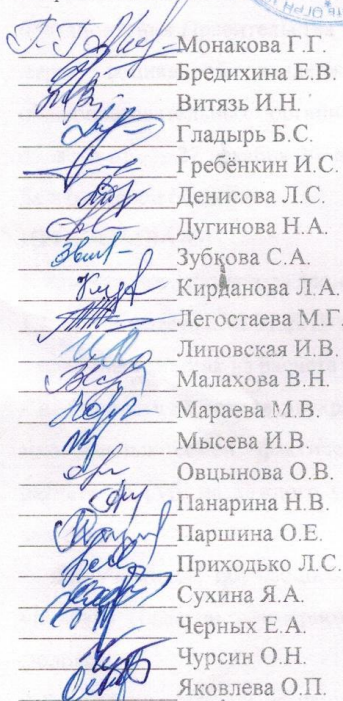 Монакова Г.Г.
Бредихина Е.В.
Витязь И.Н.
Гладырь Б.С.
Гребёнкин И.С.
Денисова Л.С.
Дугинова Н.А.
Зубкова С.А.
Кирданова Л.А.
Легостаева М.Г.
Липовская И.В.
Малахова В.Н.
Мараева М.В.
Мысева И.В.
Овцынова О.В.
Панарина Н.В.
Паршина О.Е.
Приходько Л.С.
Сухина Я.А.
Черных Е.А.
Чурсин О.Н.
Яковлева О.П.